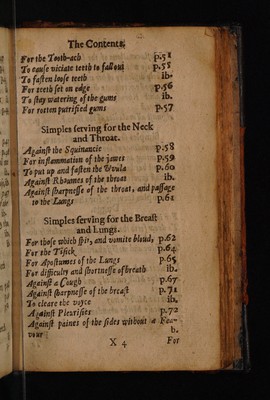 The Contents.
For the Tooth-ach p.51
To cause viciate teeth to fall out p.55
To fasten loose teeth ib.
For teeth set on edge p.56
To stay watering of the gums ib.
For rotten putrified gums p.57
Simples serving for the Neck
and Throat.
Against the Squinancie p.58
For inflammation of the jawes p.59
To put up and fasten the Uvula p.60
Against Rheumes of the throat ib.
Against sharpnesse of the throat, and passage
to the Lungs p.61
Simples serving for the Breast
and Lungs.
For those which spit, and vomite bloud, p.62
For the Tisick p.64
For Apostumes of the Lungs p.65
For difficulty and shortnesse of breath ib.
Against a Cough p.67
Against sharpnesse of the breast p.71
To cleare the voyce ib.
Against Pleurisies p.72
Against paines of the sides without a Fea-
vour b.
X 4 For